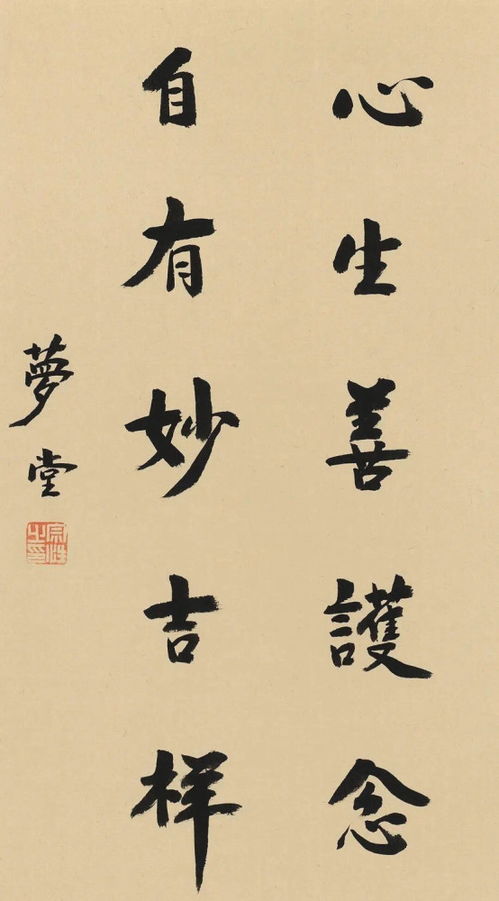 心生善護念
自有妙吉样
夢堂